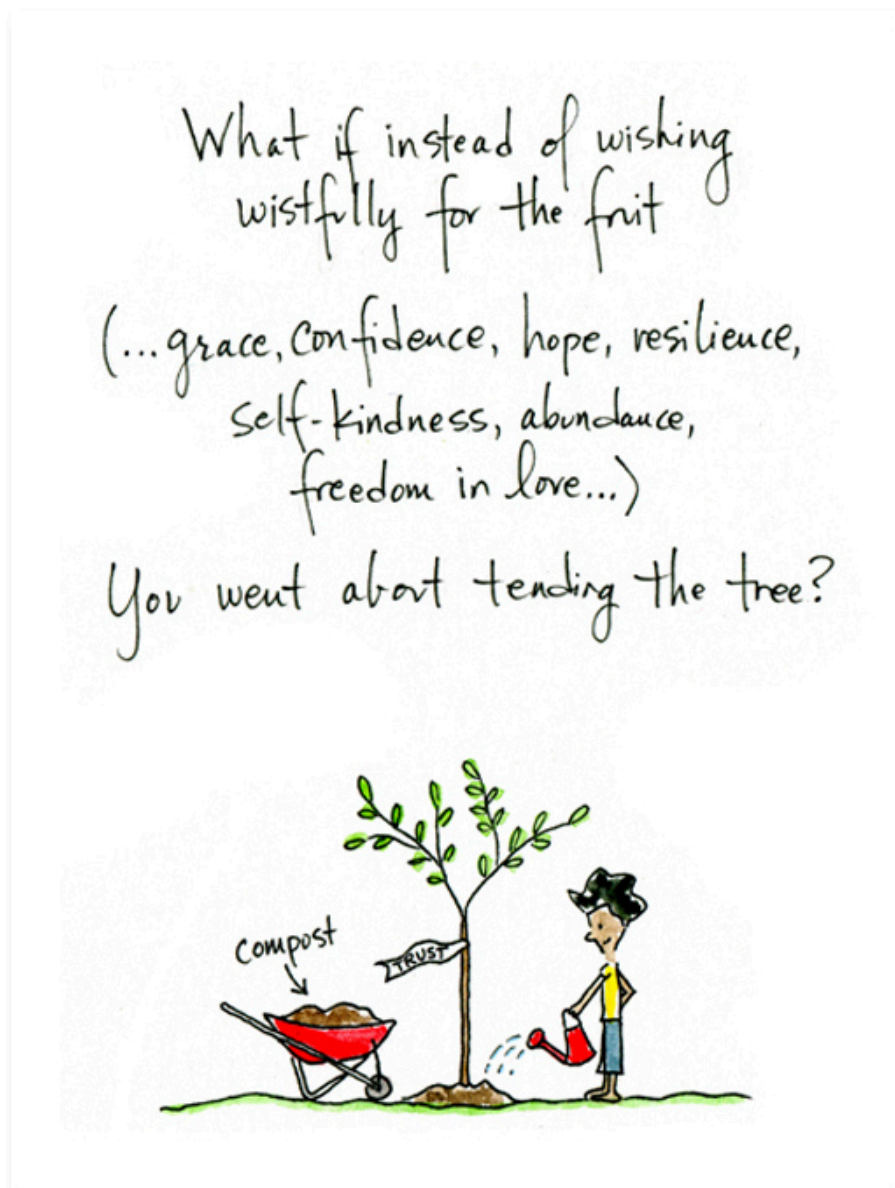 What if instead of wishing
wistfully for the fruit
(...grace, confidence, hope, resilience,
self-kindness, abundance,
freedom in love...)
You went about tending the tree?
compost
TRUST